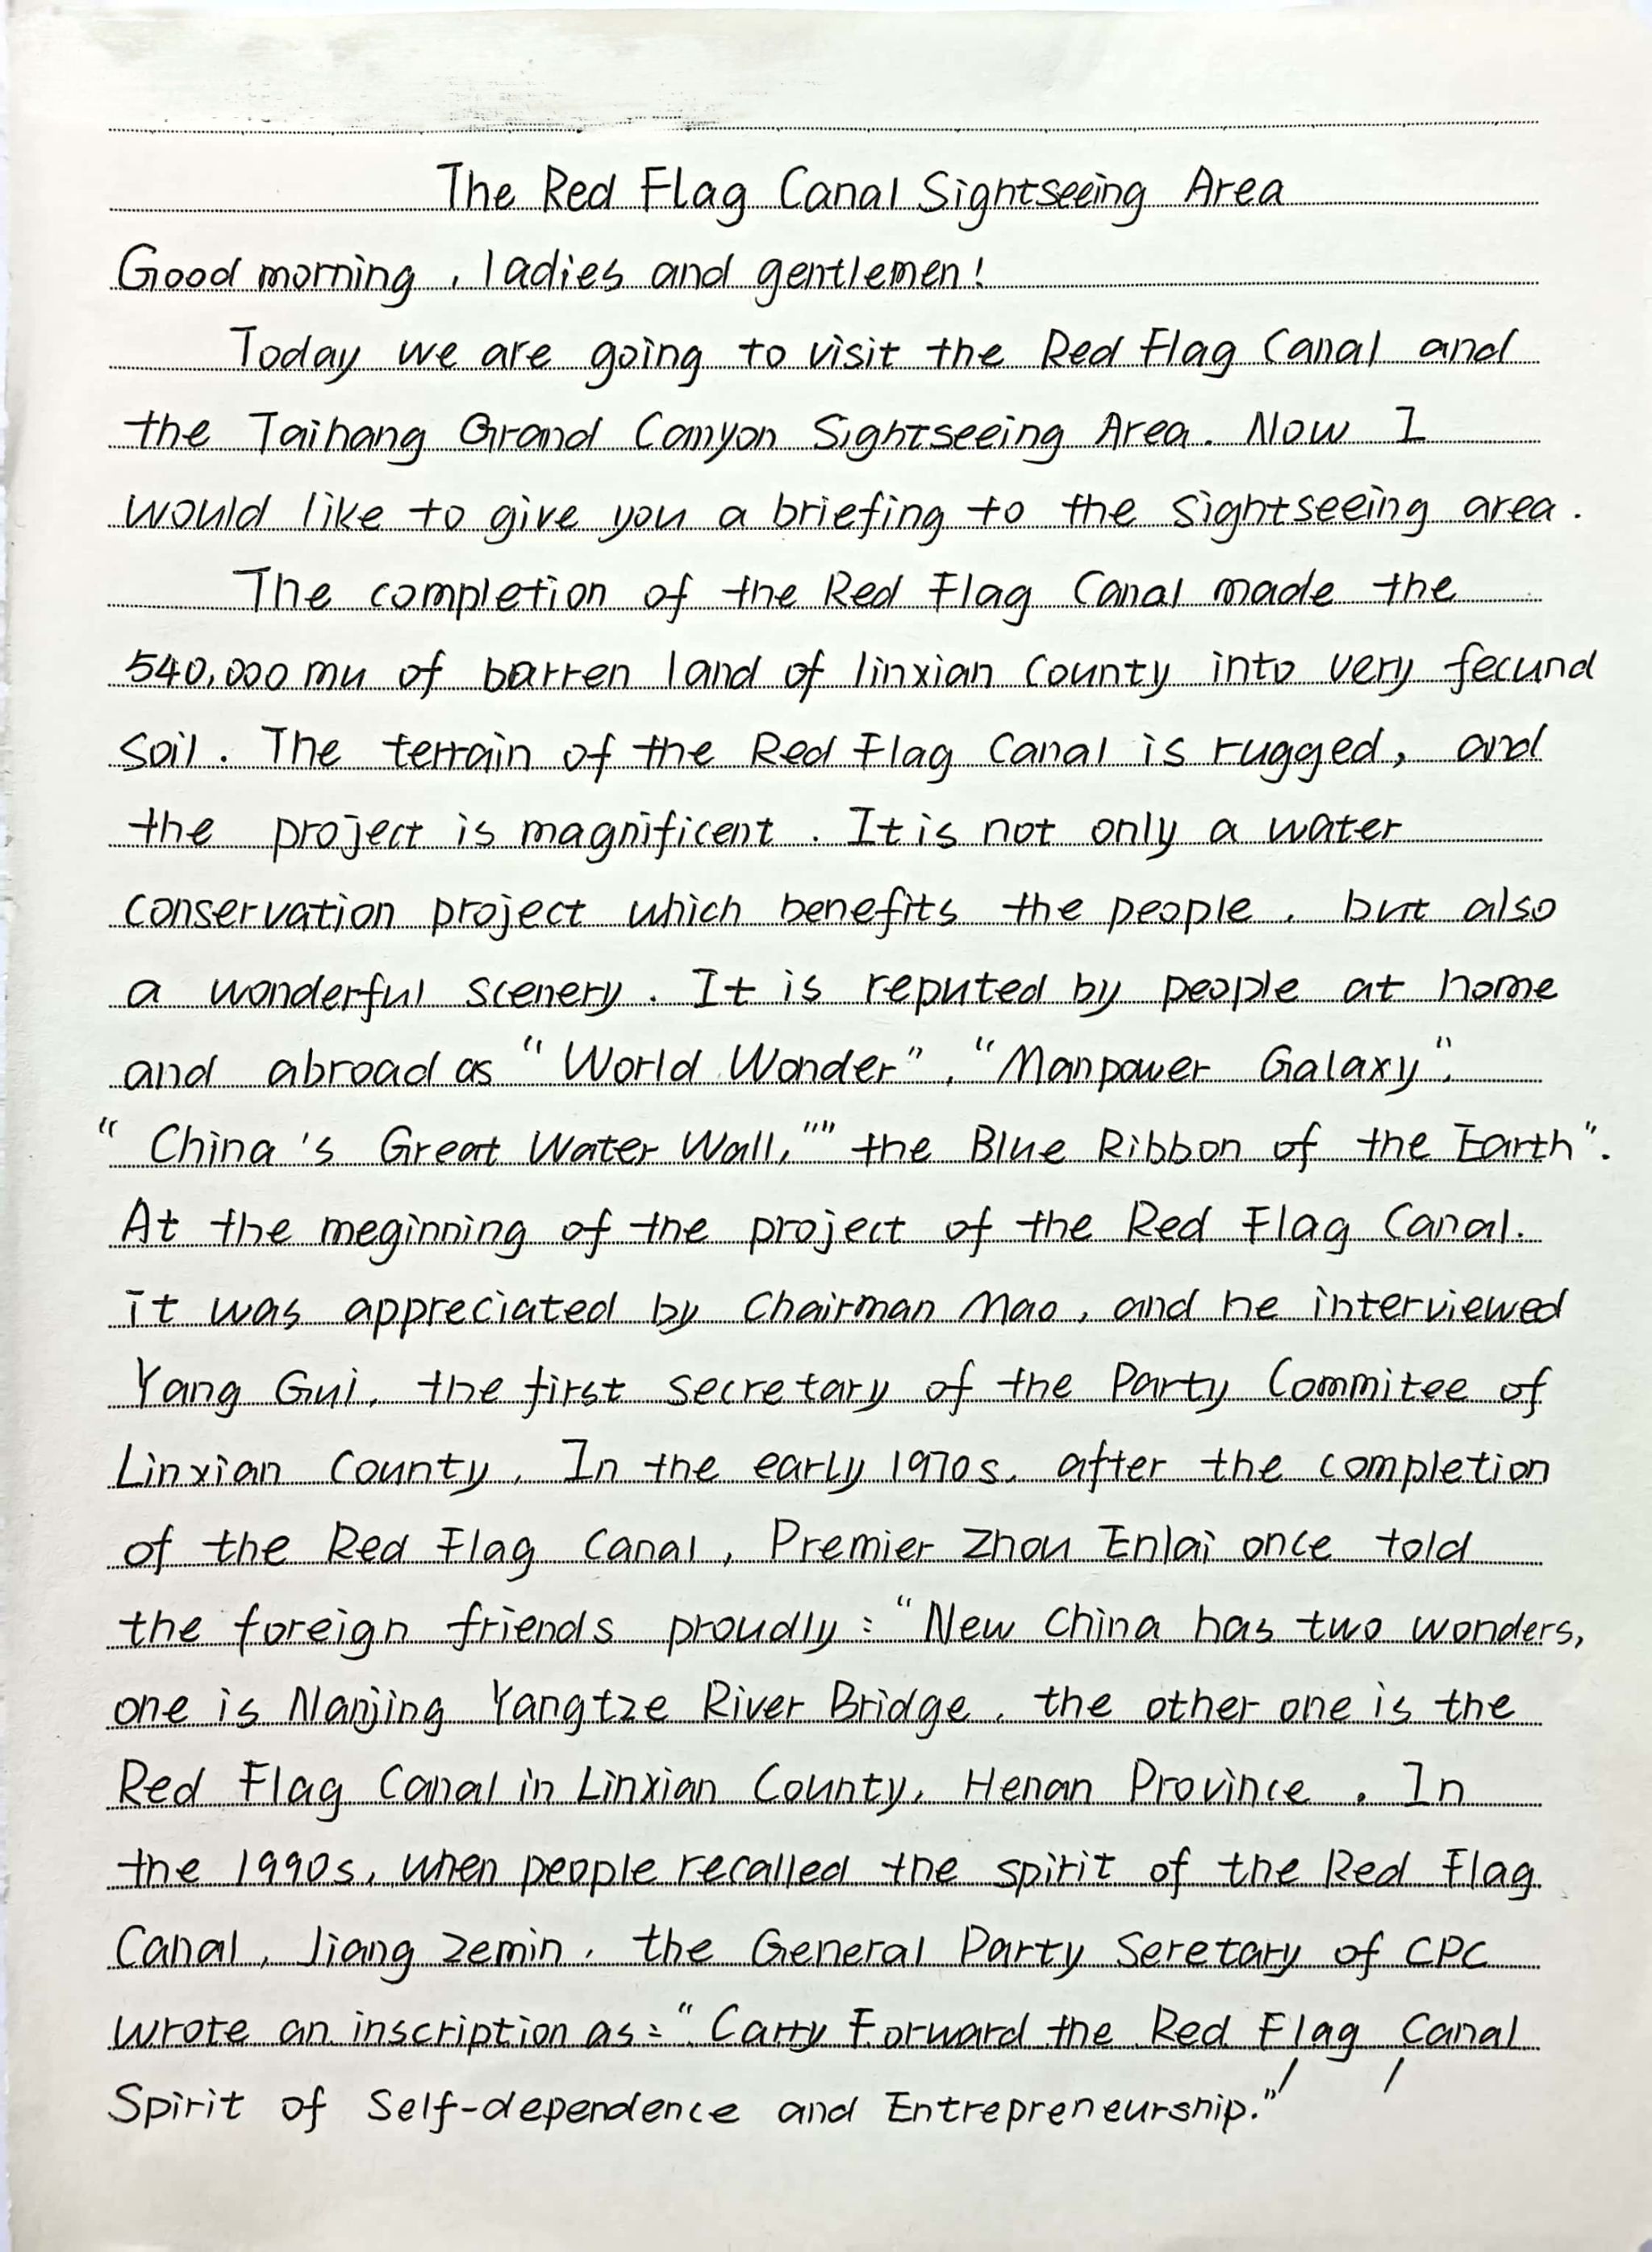 The Red Flag Canal Sightseeing Area
Good morning, ladies and gentlemen!
Today we are going to visit the Red Flag Canal and
the Taihang Grand Canyon Sightseeing Area. Now I
would like to give you a briefing to the sightseeing area.
The completion of the Red Flag Canal made the
540,000 mu of barren land of linxian County into very fecund
soil. The terrain of the Red Flag Canal is rugged, and
the project is magnificent. It is not only a water
conservation project which benefits the people, but also
a wonderful scenery. It is reputed by people at home
and abroad as "World Wonder", "Manpower Galaxy",
"China's Great Water Wall,""the Blue Ribbon of the Earth".
At the meginning of the project of the Red Flag Canal.
it was appreciated by Chairman Mao, and he interviewed
Yang Gui, the first secretary of the Party Commitee of
Linxian County. In the early 1970s, after the completion
of the Red Flag Canal, Premier Zhou Enlai once told
the foreign friends proudly: "New China has two wonders,
one is Nanjing Yangtze River Bridge, the other one is the
Red Flag Canal in Linxian County, Henan Province. In
the 1990s, when people recalled the spirit of the Red Flag
Canal, Jiang Zemin, the General Party Seretary of CPC
wrote an inscription as: "Carry Forward the Red Flag Canal
Spirit of Self-dependence and Entrepreneurship."